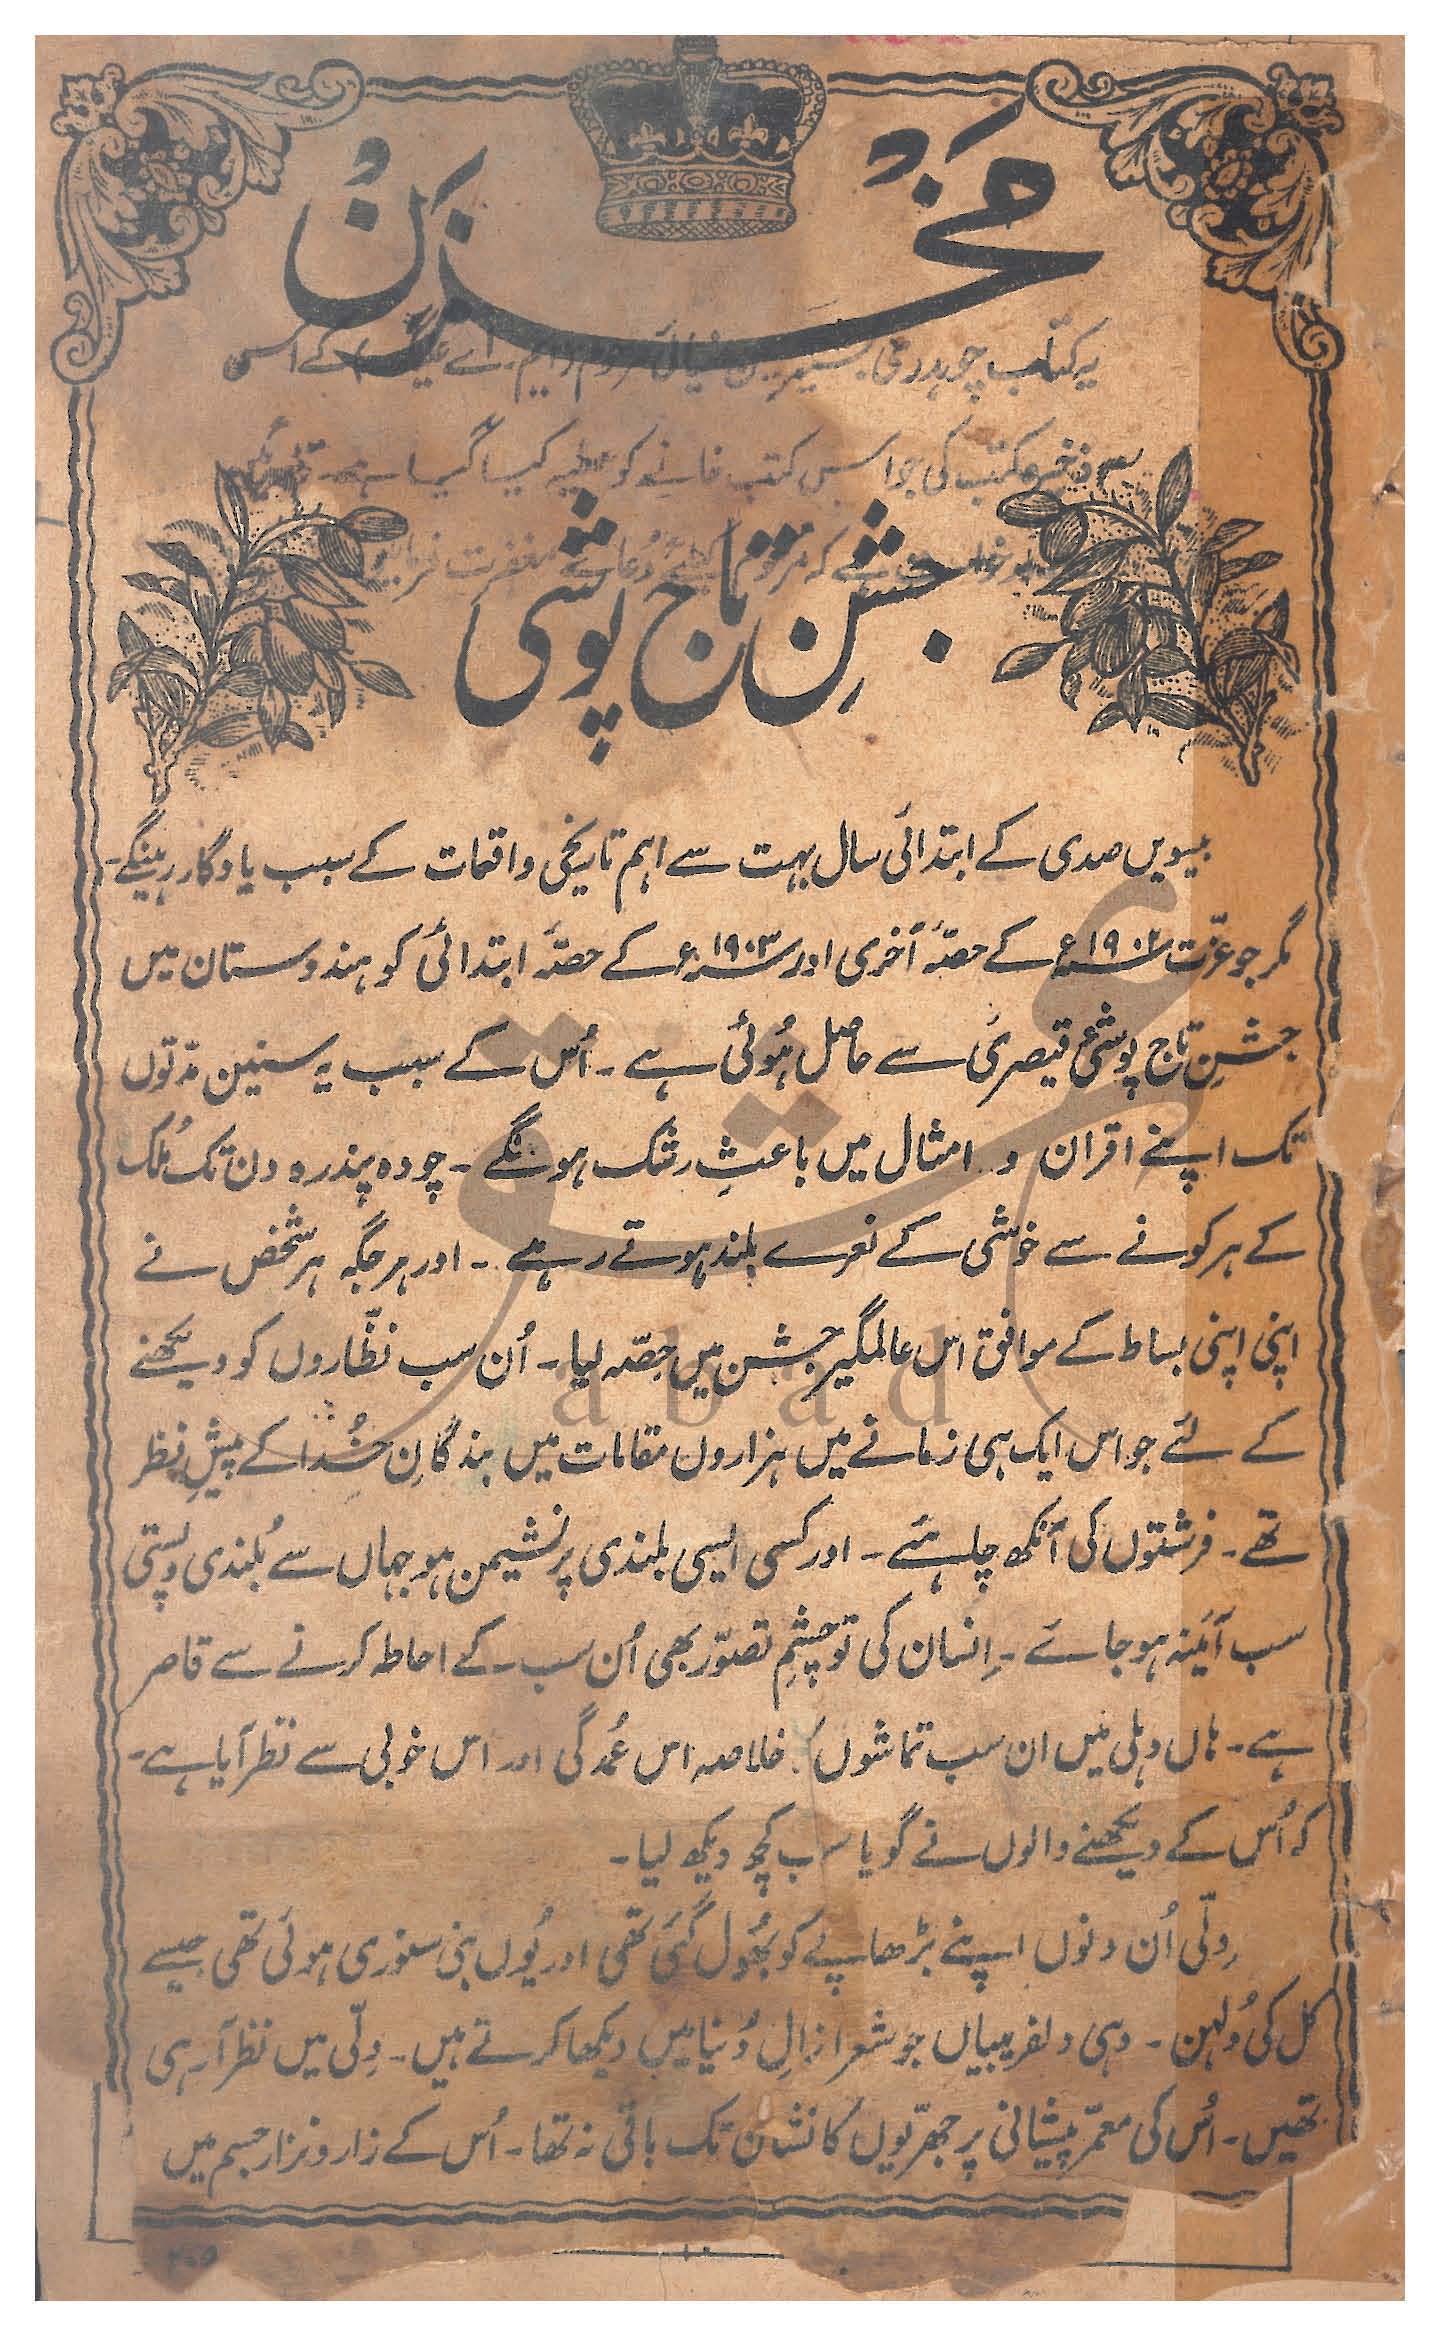 مَخْزَنُ
یہ کتاب چوہدری
ذخیرہ کتب کی جو اس کتب خانے کو عطیہ کیا گیا ہے
دُعائے مغفرت
جشنِ تاج پوشی
بیسویں صدی کے ابتدائی سال بہت سے اہم تاریخی واقعات کے سبب یادگار رہینگے۔
مگر جو عزّت ۱۹۰۲ء کے حصّہ آخری اور ۱۹۰۳ء کے حصّہ ابتدائی کو ہندوستان میں
جشنِ تاج پوشیٔ قیصری سے حاصل ہُوئی ہے ۔ اُس کے سبب یہ سنین مدّتوں
تک اپنے اقران و امثال میں باعثِ رشک ہونگے ۔ چودہ پندرہ دن تک مُلک
کے ہر کونے سے خوشی کے نعرے بلند ہوتے رہے ۔ اور ہر جگہ ہر شخص نے
اپنی اپنی بساط کے موافق اس عالمگیر جشن میں حِصّہ لیا ۔ اُن سب نظّاروں کو دیکھنے
abad
کے لئے جو اس ایک ہی زمانے میں ہزاروں مقامات میں بندگانِ خُدا کے پیشِ نظر
تھے ۔ فرشتوں کی آنکھ چاہئے ۔ اور کسی ایسی بلندی پر نشیمن ہو جہاں سے بُلندی و پستی
سب آئینہ ہو جائے ۔ اِنسان کی تو چشمِ تصوّر بھی اُن سب کے احاطہ کرنے سے قاصر
ہے ۔ ہاں دہلی میں ان سب تماشوں کا خلاصہ اس عُمدگی اور اس خوبی سے نظر آیا ہے ۔
کہ اُس کے دیکھنے والوں نے گویا سب کچھ دیکھ لیا ۔
دِلّی اُن دنوں اپنے بڑھاپے کو بھُول گئی تھی اور یُوں بنی سنوری ہوئی تھی جیسے
کل کی دُلہن ۔ وہی دلفریبیاں جو شعرا زالِ دُنیا میں دیکھا کرتے ہیں ۔ دِلّی میں نظر آ رہی
تھیں ۔ اُس کی معمّر پیشانی پر جھرّیوں کا نشان تک باقی نہ تھا ۔ اُس کے زار و نزار جسم میں